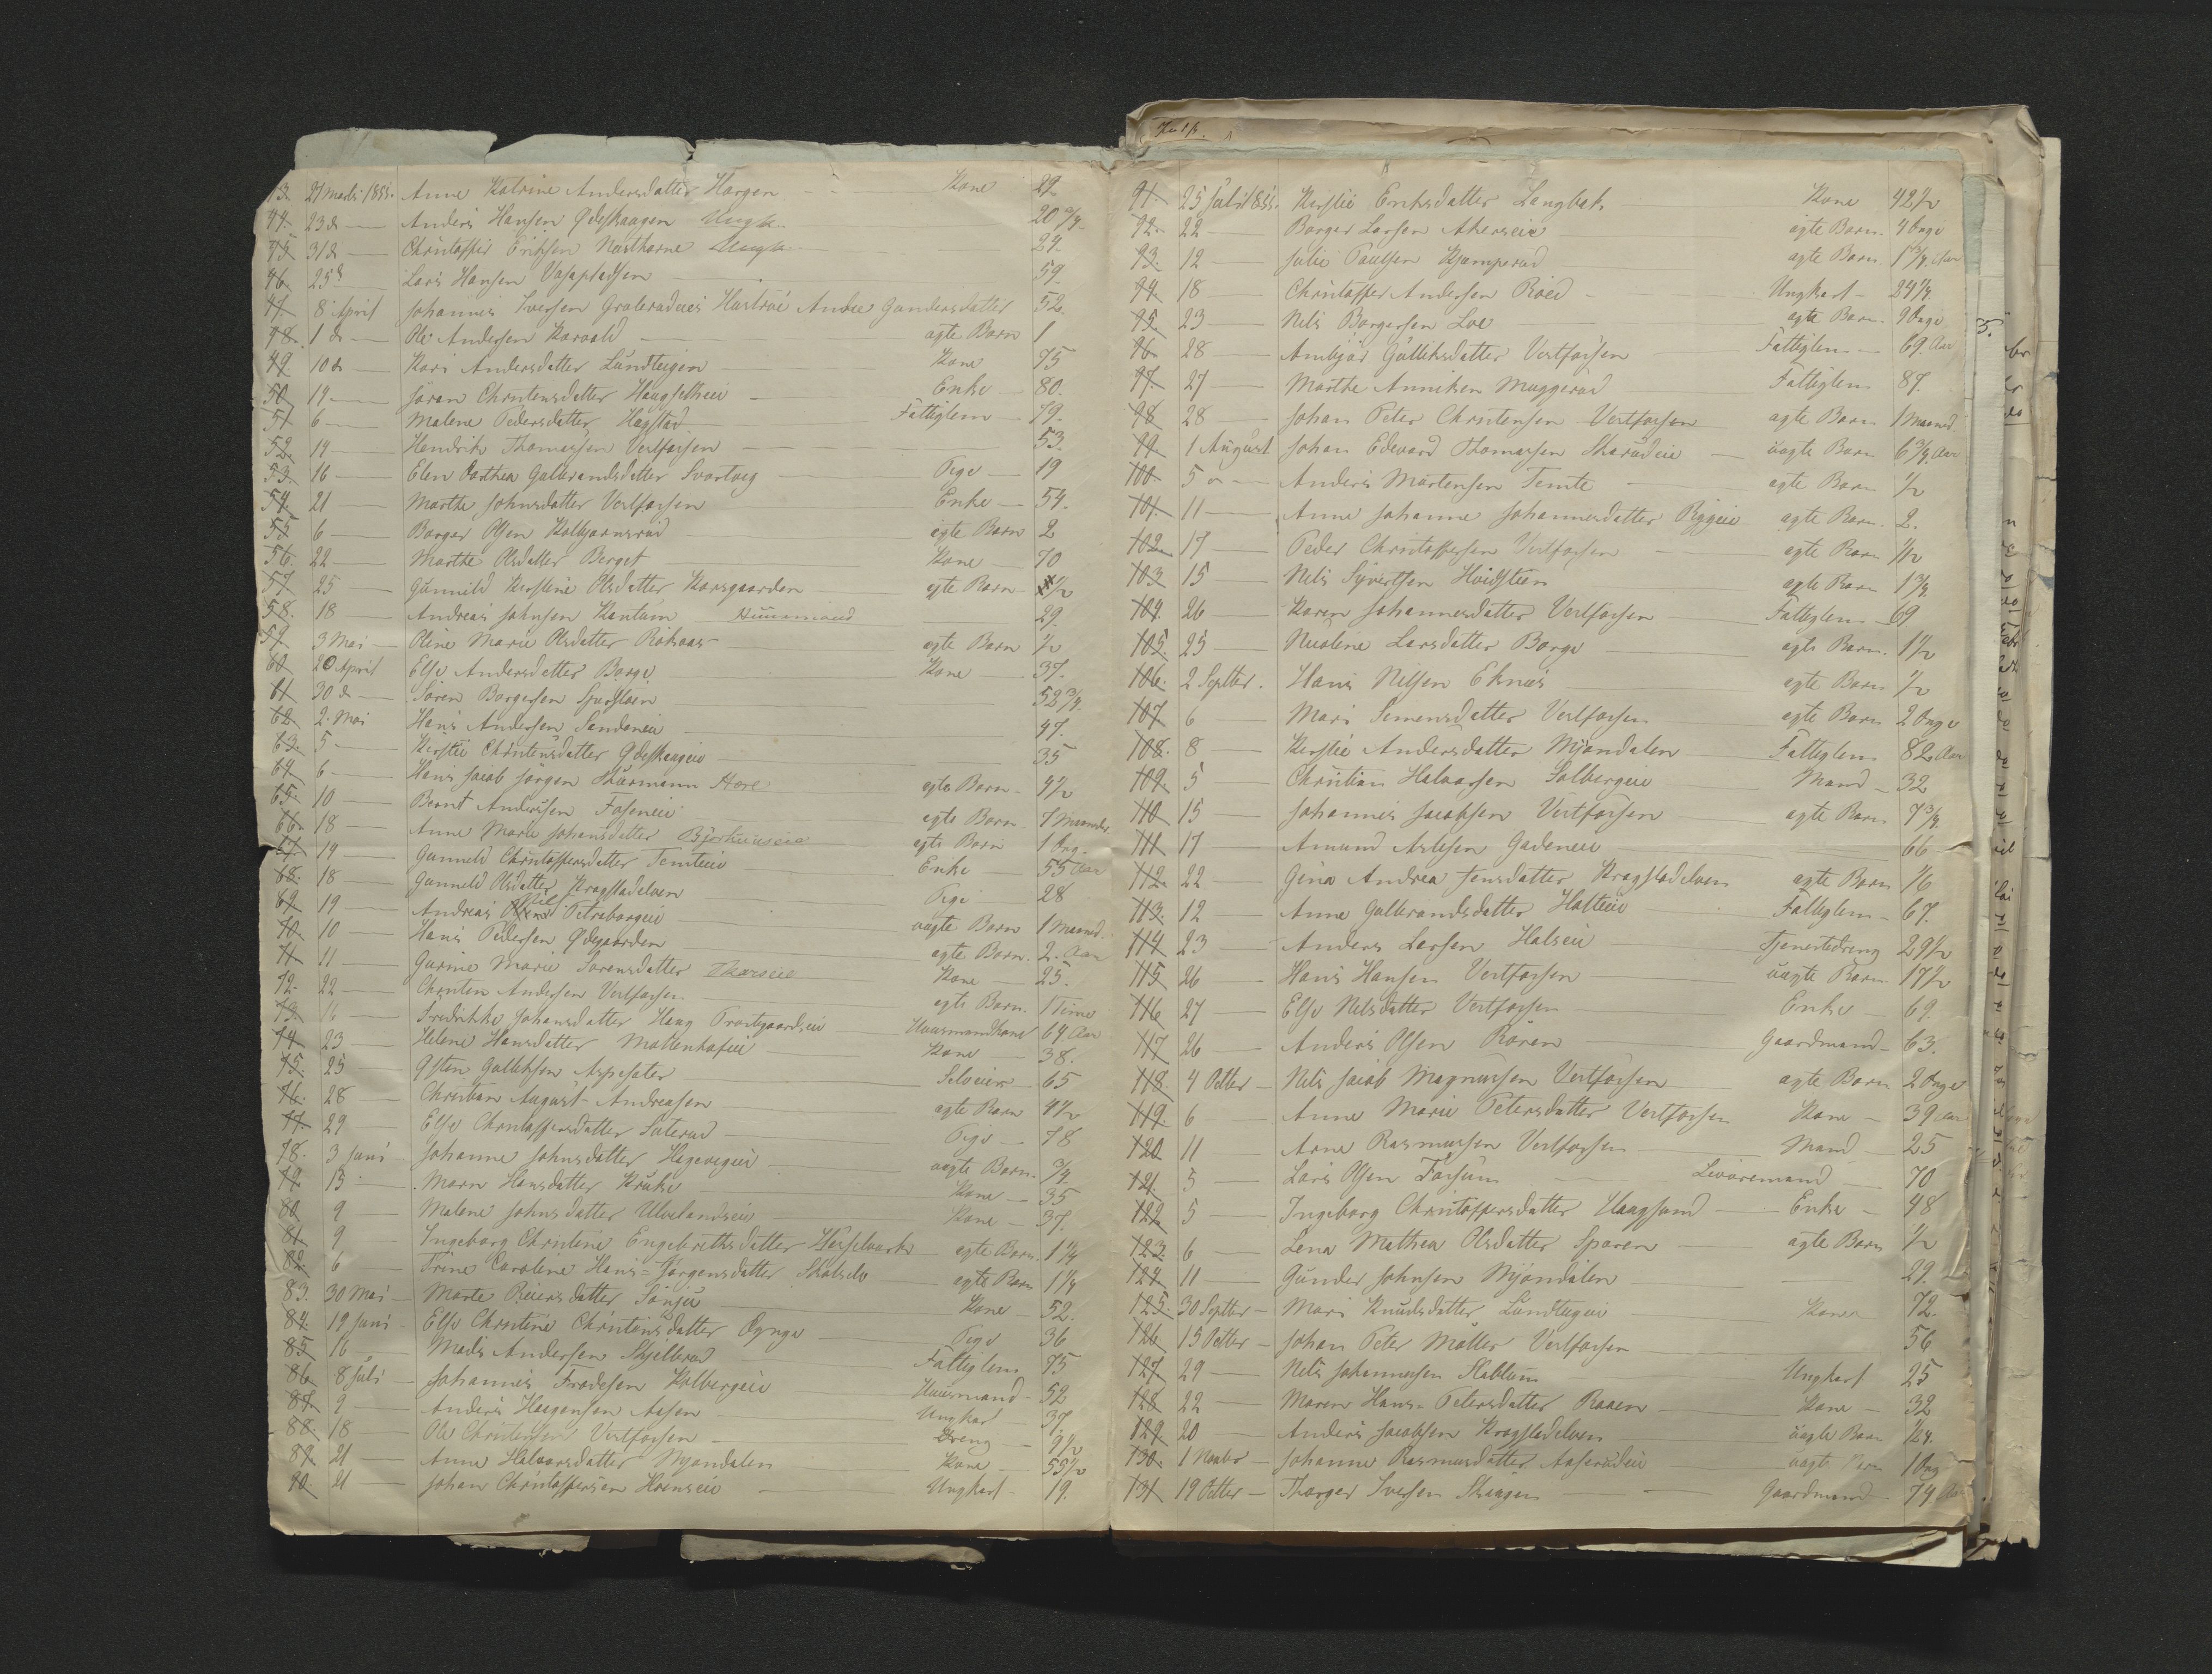 43. 21 Marts 1855. Anne Katrine Andersdatter Horgen Kone 29.
44. 23 d. Anders Hansen Ødeskaagen Ungk. 20 3/4.
45. 31 d. Christoffer Eriksen Ungk. 24.
46. 25 d. Lars Hansen 59.
47. 8 April Johannes Iversen Hustroe Andrea Gundersdatter 52.
48. 1 d. Ole Andersen Korvald ægte Barn 1
49. 10 d. Kari Andersdatter Lundteigen Kone 75
50. 14 Søren Christensdatter Enke 80.
51. 6 Malene Pedersdatter Hagstad Fattiglem 79.
52. 19 Hendrik Thomassen Vestfossen 53.
53. 16 Elen Dorthea Gulbrandsdatter Pige 19
54. 21 Marthe Johnsdatter Vestfossen Enke 54.
55. 6 Borger Olsen Kolbjørnsrud ægte Barn 2
56. 22 Marthe Olsdatter Berget Kone 70
57. 25 Gunnild Kirstine Olsdatter Korsgaarden ægte Barn 1/2
58. 18 Andreas Johnsen Huusmand 29.
59. 3 Mai Oline Marie Olsdatter Røkaas ægte Barn 1/2
60. 20 April Else Andersdatter Borge Kone 37.
61. 30 d. Søren Borgersen 52 3/4.
62. 2. Mai Hans Andersen 47.
63. 5 Kirstie Christensdatter 35
64. 6 Hans Jacob Jørgen Huusmann Hore ægte Barn 4 1/2
65. 10 Bernt Andersen ægte Barn
66. 18 Anne Marie Johansdatter ægte Barn
67. 19 Gunnild Christoffersdatter Temteeie Enke 55 Aar
68. 18 Gunnild Olsdatter Kragstadelven Pige 28
69. 19 Andreas Petreborgeie uægte Barn 1 Maaned.
70. 10 Hans Pedersen Ødegaarden ægte Barn. 2. Aar
71. 11 Gurine Marie Sørensdatter Kone 25.
72. 22 Christen Andersen Vestfossen ægte Barn. 1 Time
73. 16 Fredrikke Johansdatter Haug Huusmandkone 64 Aar
74. 23 Helene Hansdatter Kone 38.
75. 25 Østen Gulliksen Selveier 65
76. 28 Christian August Andreasen ægte Barn 4 1/2
77. 29 Else Christoffersdatter Pige 78
78. 3 Juni Johanne Johnsdatter uægte Barn 3/4.
79. 13 Maren Hansdatter Kruke Kone 35
80. 9 Malene Johnsdatter Ulvelandseie Kone 37.
81. 9 Ingeborg Christine Engebrethsdatter ægte Barn. 1 1/4
82. 6 Trine Caroline Hans-Jørgensdatter Skotselv ægte Barn 1 1/4
83. 30 Mai Marte Reiersdatter Kone 52.
84. 19 Juni Else Christine Christensdatter Pige 36
85. 16 Mads Andersen Skjelbred Fattiglem 75
86. 8 Juli Johannes Frodesen Huusmand 52
87. 9 Anders Haagensen Aasen Ungkar 37.
88. 18 Ole Christensen Vestfossen Dreng 9 1/2
89. 21 Anne Halvorsdatter Mjøndalen Kone 55 1/2
90. 21 Johan Christoffersen Horneseie Ungkarl 19.
91. 25 Juli 1855. Kirstie Eriksdatter Langbak Kone 42 1/2
92. 22 Borger Larsen Akerseie ægte Barn. 4 Dage
93. 12 Julie Paulsen Kjemperud ægte Barn. 1 3/4. Aar
94. 18 Christoffer Andersen Røed Ungkarl 24 1/4.
95. 23 Nils Borgersen Loe ægte Barn. 9 Dage
96. 28 Ambjør Gulliksdatter Vestfossen Fattiglem 69. Aar
97. 27 Marthe Anniken Muggerud Fattiglem 87.
98. 28 Johan Peter Christensen Vestfossen ægte Barn 1 Maaned.
99. 1 August Johan Edevard Thomassen uægte Barn 6 3/4. Aar
100. 5 Anders Mortensen Temte ægte Barn 1/2
101. 11 Anne Johanne Johannesdatter ægte Barn. 2.
102. 17 Peder Christoffersen Vestfossen ægte Barn 1/12
103. 15 Nils Syvertsen Hvidsteen ægte Barn 1 3/4.
104. 26 Karen Johannesdatter Vestfossen Fattiglem 69
105. 25 Nicoline Larsdatter Borge ægte Barn. 1 1/2
106. 2 Septber. Hans Nilsen Eknes ægte Barn 1/2
107. 6 Mari Simensdatter Vestfossen ægte Barn 2 Dage
108. 8 Kirstie Andersdatter Mjøndalen Fattiglem 82 Aar
109. 5 Christian Halvorsen Solbergeie Mand 32
110. 15 Johannes Jacobsen Vestfossen ægte Barn 7 3/4.
111. 17 Amund Aslesen 66
112. 22 Gina Andrea Jensdatter Kragstadelven ægte Barn 1/6
113. 12 Anne Gulbrandsdatter Fattiglem 67.
114. 23 Anders Larsen Tjenestedreng 29 1/2
115. 26 Hans Hansen Vestfossen uægte Barn. 17 1/2
116. 27 Else Nilsdatter Vestfossen Enke 69.
117. 26 Anders Olsen Røren Gaardmand 63.
118. 4 Octber Nils Jacob Magnussen Vestfossen ægte Barn 2 Dage
119. 6 Anne Marie Petersdatter Vestfossen Kone 39 Aar
120. 11 Arne Rasmussen Vestfossen Mand 25
121. 5 Lars Olsen Fossum 70
122. 5 Ingeborg Christoffersdatter Haugsund Enke 48
123. 6 Lena Mathea Olsdatter Sporen ægte Barn 1/2
124. 11 Gunder Johnsen Mjøndalen 29.
125. 30 Septber Mari Knudsdatter Lundteigeie Kone 72.
126. 13 Octber Johan Peter Møller Vestfossen 56
127. 29 Nils Johannesen Stablum Ungkarl 25
128. 22 Maren Hans-Petersdatter Kone 32
129. 20 Anders Jacobsen Kragstadelven uægte Barn 1/24.
130. 1 Novbr Johanne Rasmusdatter uægte Barn 1 Dag
131. 19 Octber Thorger Iversen Skaagen Gaardmand 74 Aar